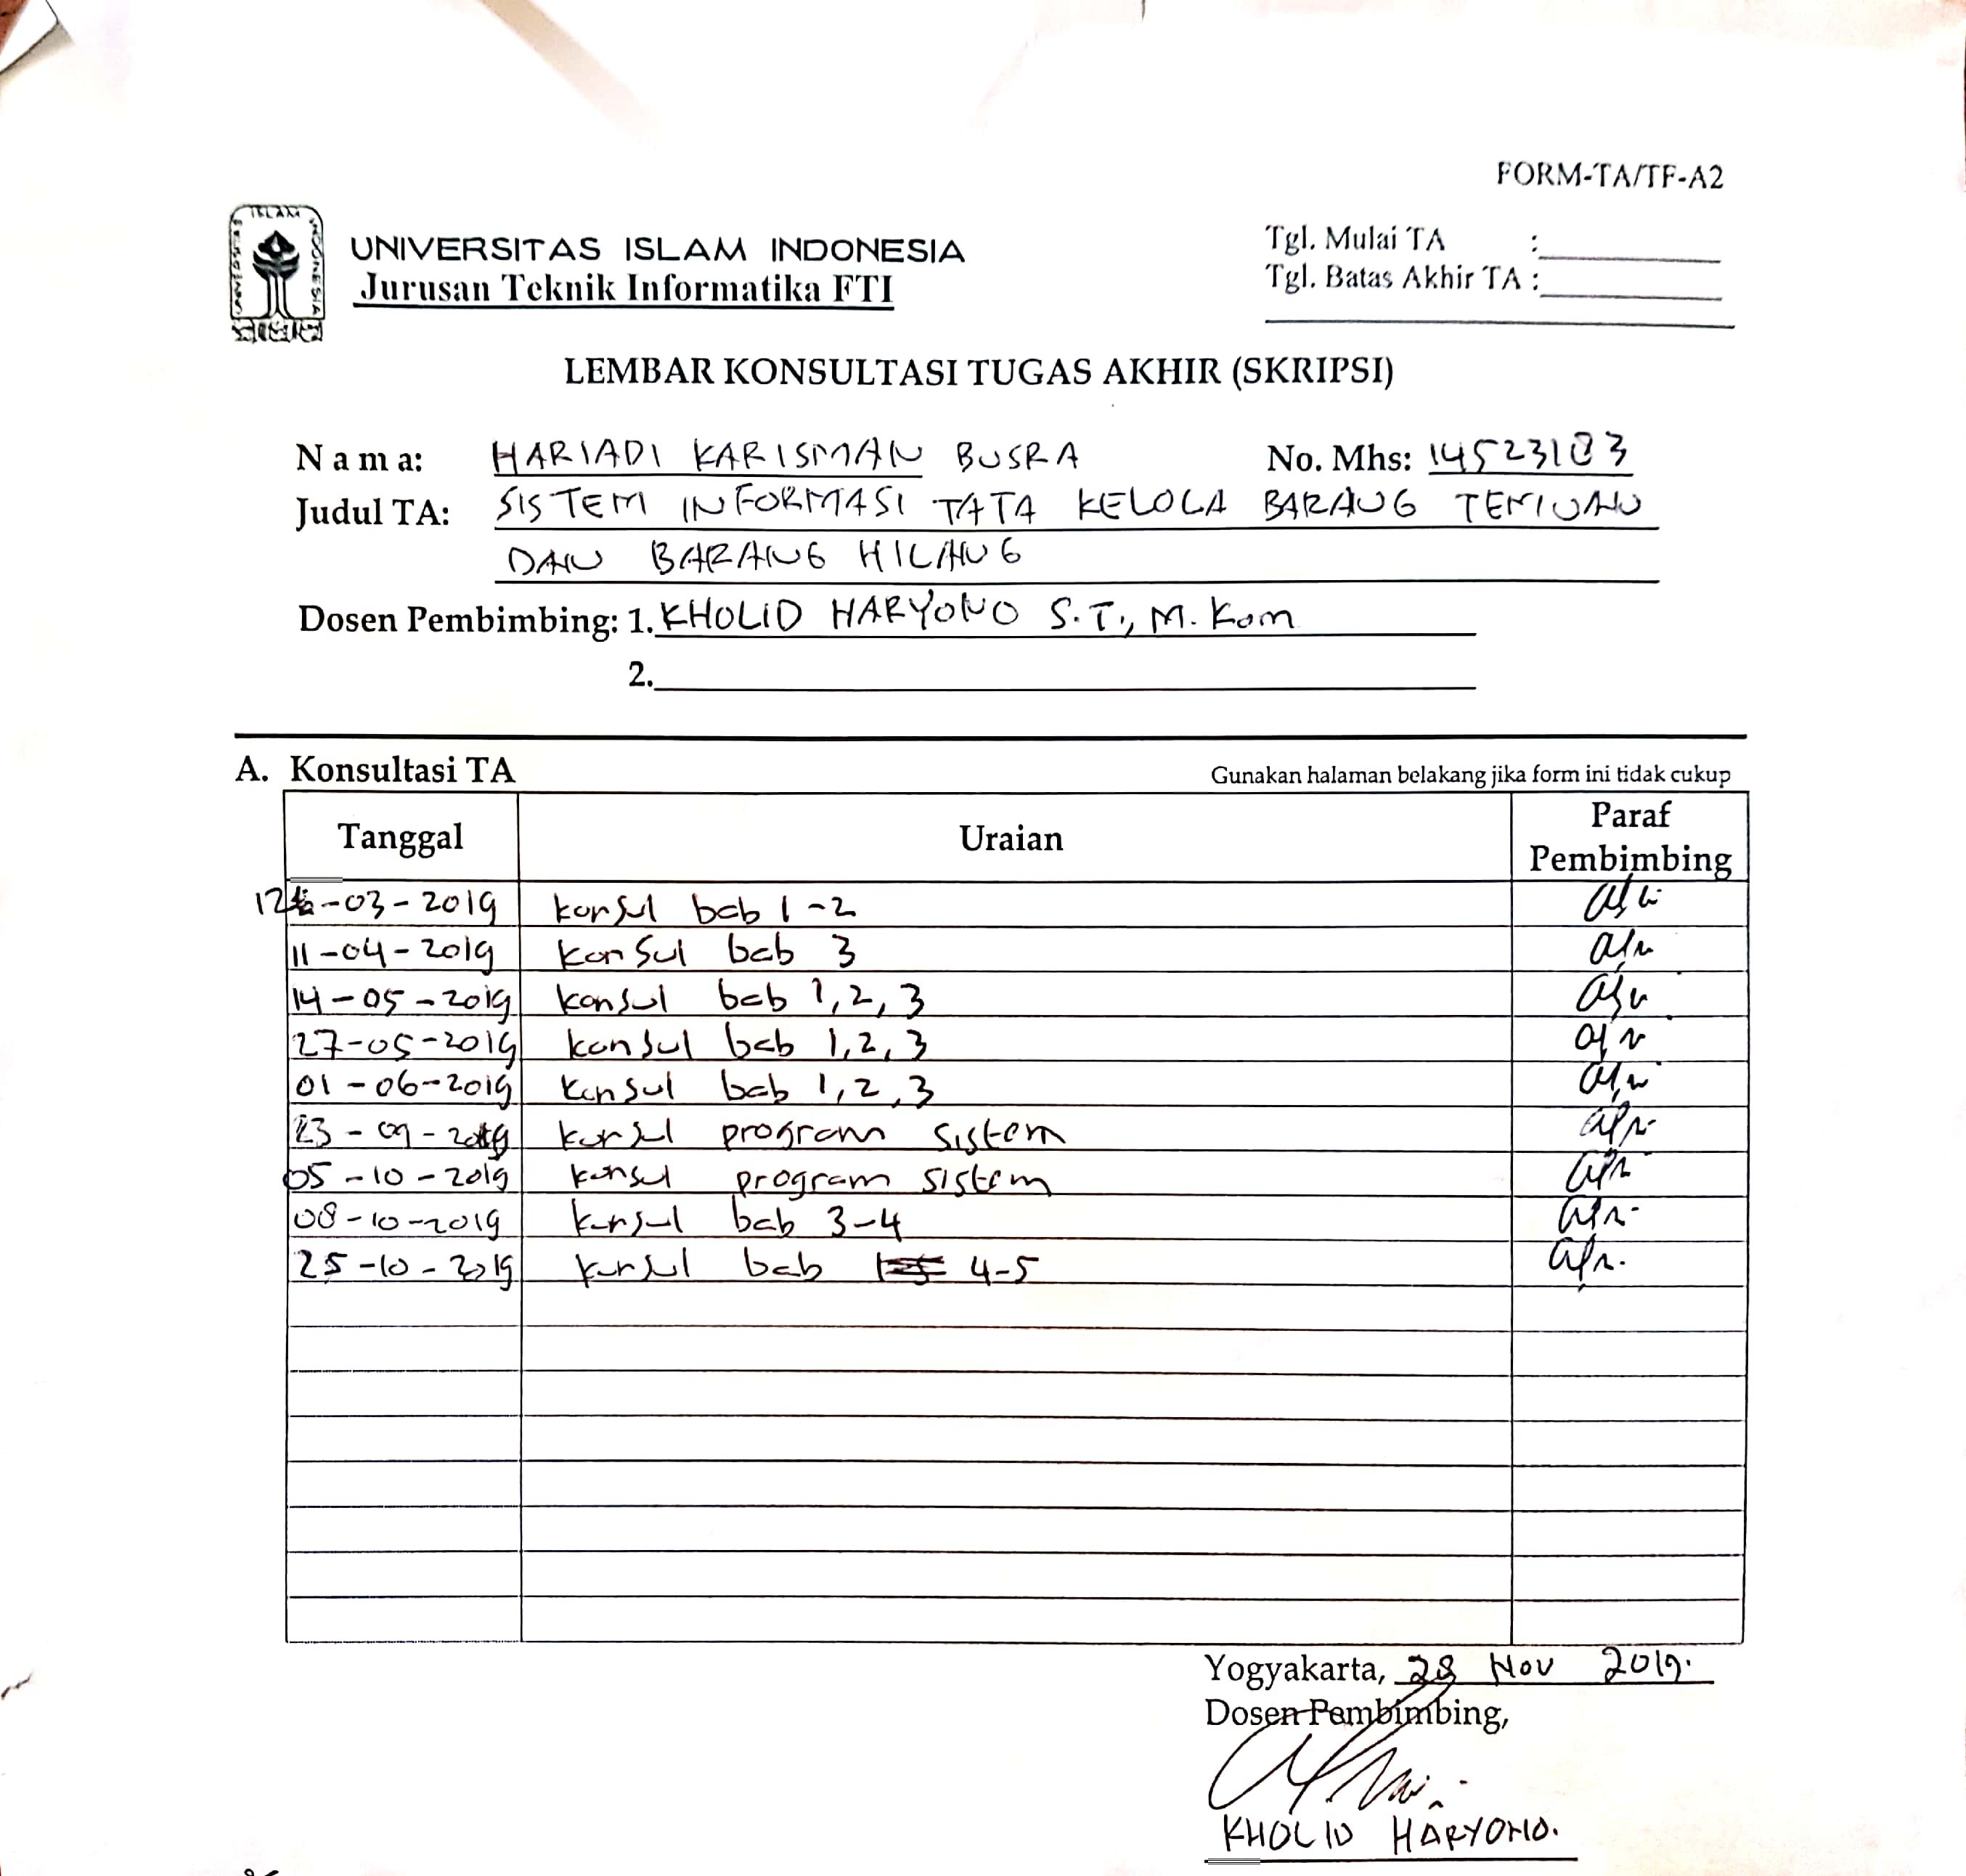 FORM-TA/TF-A2
ISLAM
INDONESIA
UNIVERSITAS ISLAM INDONESIA
Jurusan Teknik Informatika FTI
Tgl. Mulai TA :
Tgl. Batas Akhir TA :
LEMBAR KONSULTASI TUGAS AKHIR (SKRIPSI)
Nama: HARIADI KARISMAN BUSRA No. Mhs: 14523183
Judul TA: SISTEM INFORMASI TATA KELOLA BARANG TEMUAN
DAN BARANG HILANG
Dosen Pembimbing: 1. KHOLID HARYONO S.T., M.Kom
2.
A. Konsultasi TA Gunakan halaman belakang jika form ini tidak cukup
Tanggal Uraian Paraf Pembimbing
12-03-2019 konsul bab 1-2
11-04-2019 konsul bab 3
14-05-2019 konsul bab 1, 2, 3
27-05-2019 konsul bab 1, 2, 3
01-06-2019 konsul bab 1, 2, 3
23-09-2019 konsul program sistem
05-10-2019 konsul program sistem
08-10-2019 konsul bab 3-4
25-10-2019 konsul bab 4-5
Yogyakarta, 28 Nov 2019.
Dosen Pembimbing,
KHOLID HARYONO.